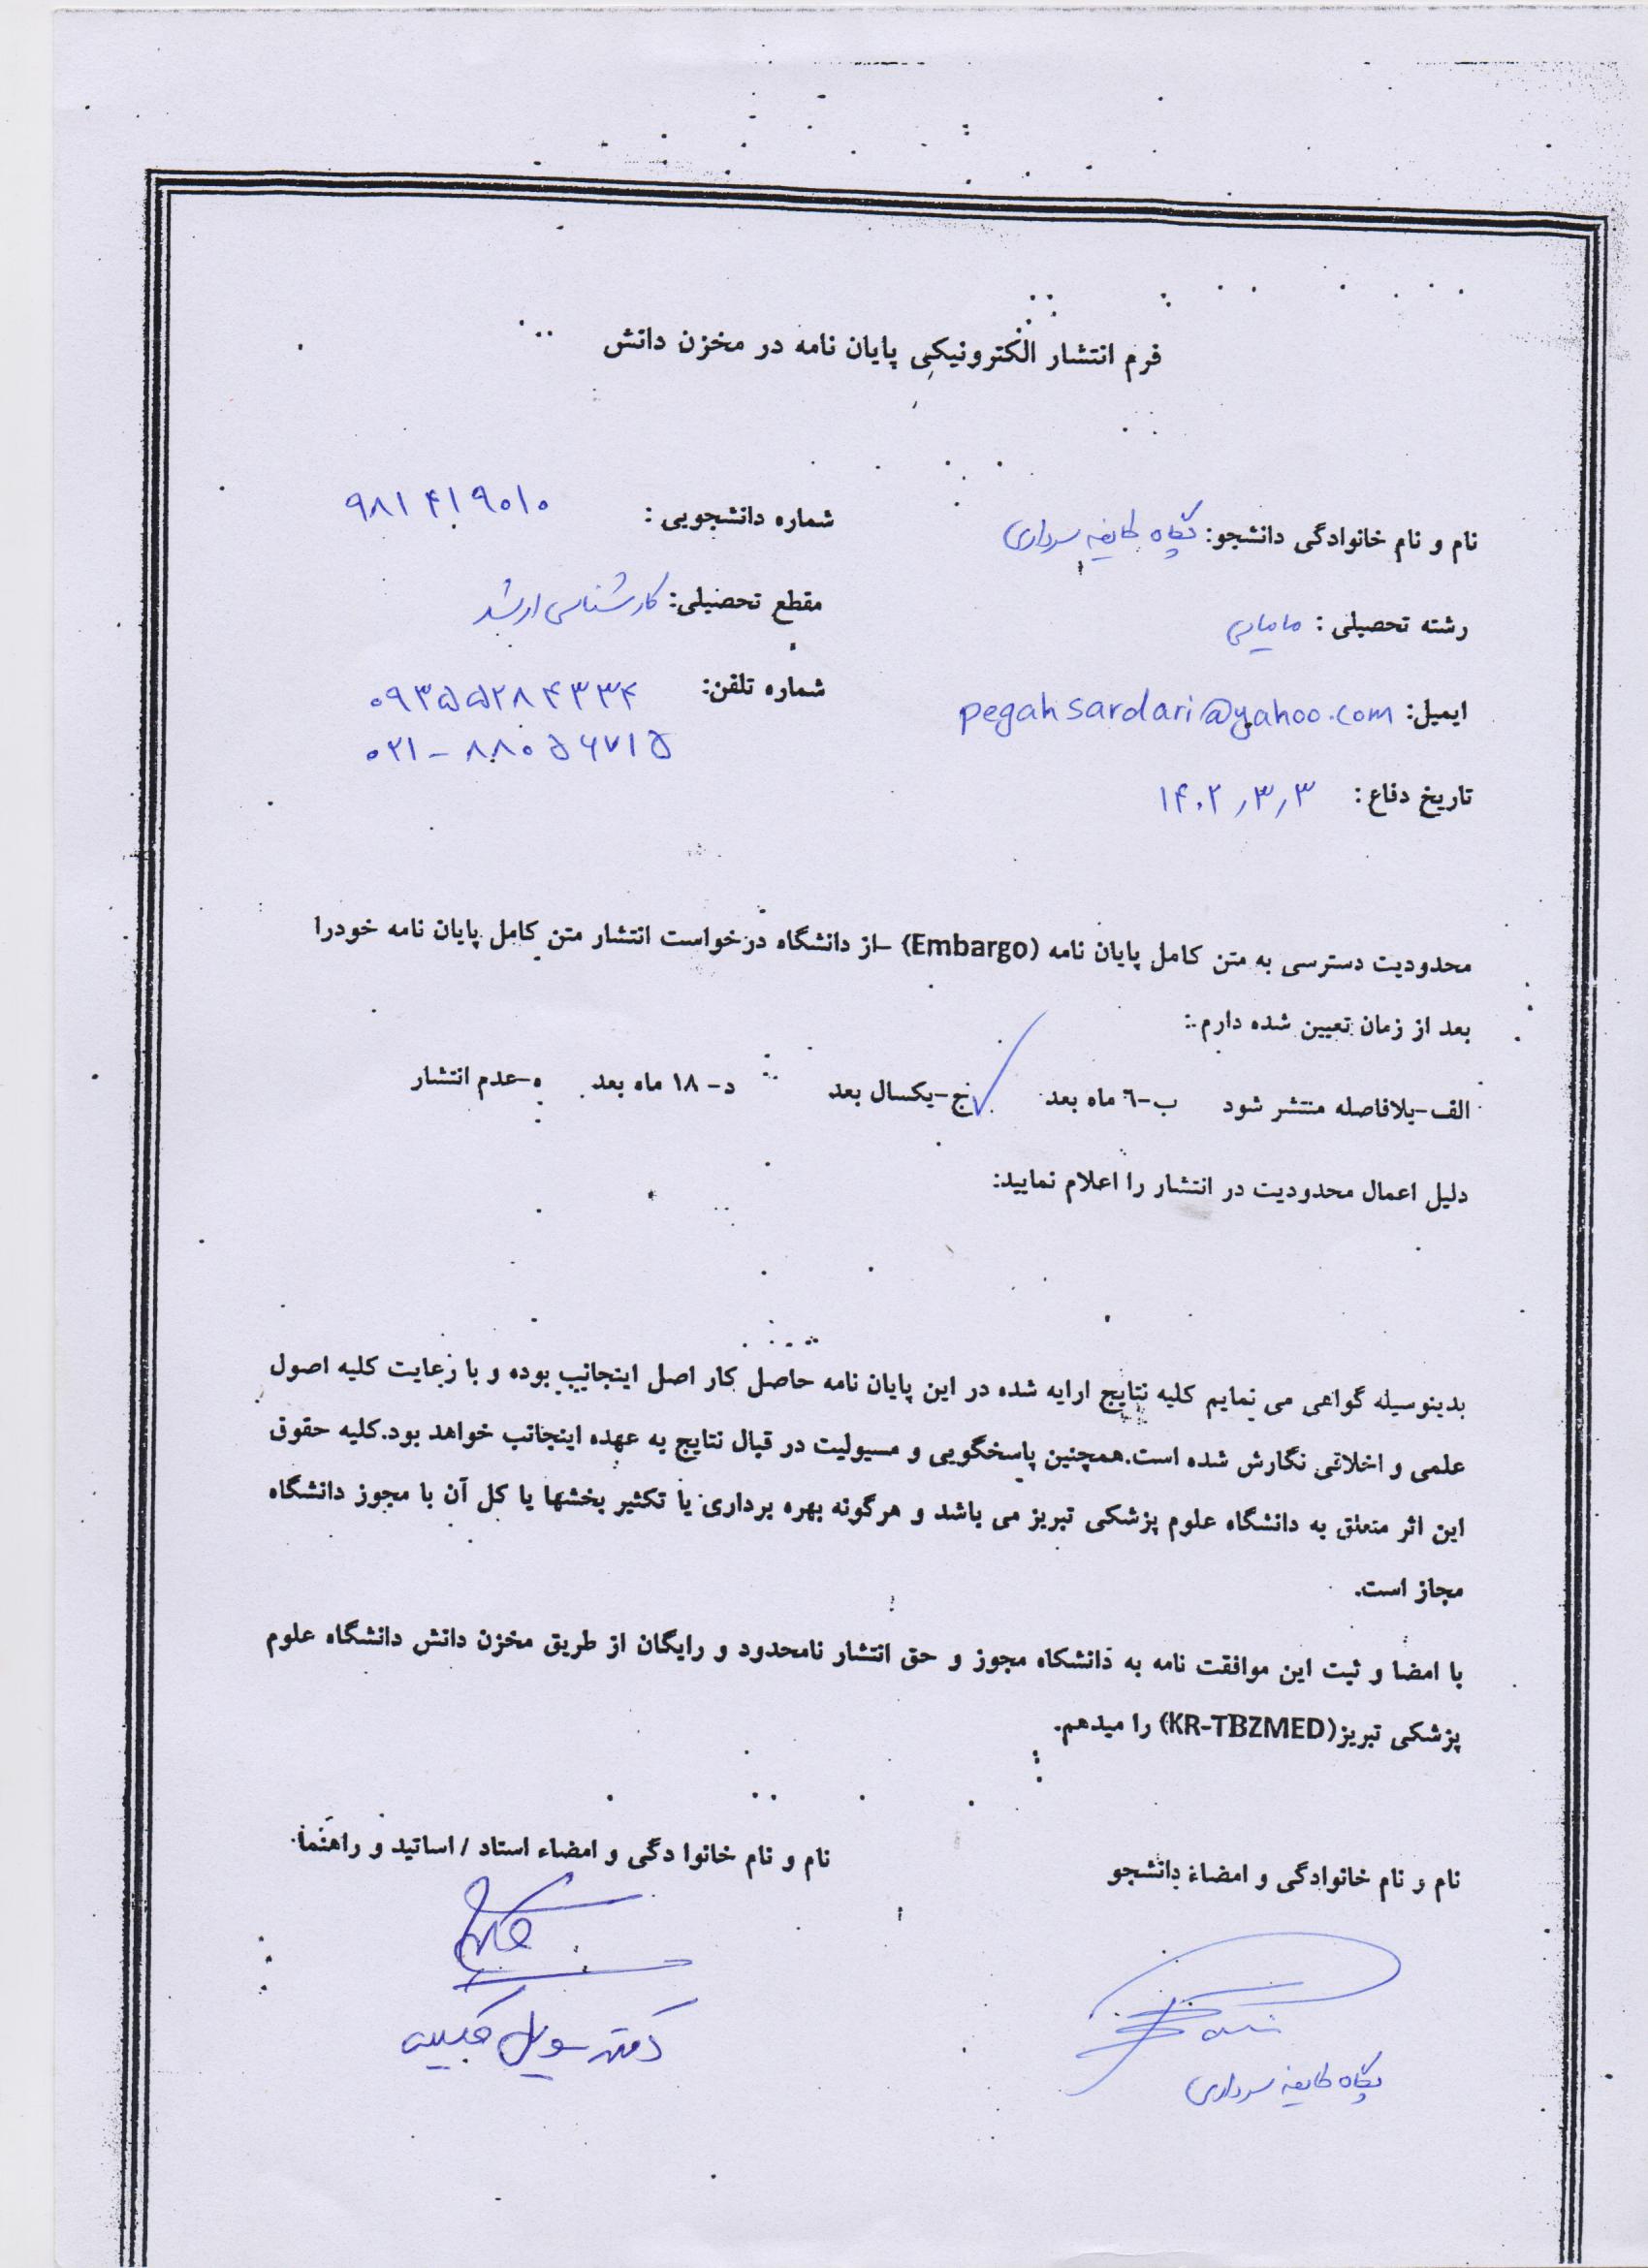 فرم انتشار الکترونیکی پایان نامه در مخزن دانش
نام و نام خانوادگی دانشجو: پگاه طایفه سرداری شماره دانشجویی: ۹۸۱۴۱۹۰۱۰
رشته تحصیلی: مامایی مقطع تحصیلی: کارشناسی ارشد
ایمیل: pegahsardari@yahoo.com شماره تلفن: ۰۹۳۵۵۲۸۴۳۳۴
۰۲۱-۸۸۰۵۶۷۱۵
تاریخ دفاع: ۱۴۰۲٫۳٫۳
محدودیت دسترسی به متن کامل پایان نامه (Embargo) –از دانشگاه درخواست انتشار متن کامل پایان نامه خودرا
بعد از زمان تعیین شده دارم:
الف-بلافاصله منتشر شود ب-٦ ماه بعد ✓ج-یکسال بعد د- ۱۸ ماه بعد ه-عدم انتشار
دلیل اعمال محدودیت در انتشار را اعلام نمایید:
بدینوسیله گواهی می نمایم کلیه نتایج ارایه شده در این پایان نامه حاصل کار اصل اینجانب بوده و با رعایت کلیه اصول
علمی و اخلاقی نگارش شده است.همچنین پاسخگویی و مسیولیت در قبال نتایج به عهده اینجانب خواهد بود.کلیه حقوق
این اثر متعلق به دانشگاه علوم پزشکی تبریز می باشد و هرگونه بهره برداری یا تکثیر بخشها یا کل آن با مجوز دانشگاه
مجاز است.
با امضا و ثبت این موافقت نامه به دانشکاه مجوز و حق انتشار نامحدود و رایگان از طریق مخزن دانش دانشگاه علوم
پزشکی تبریز(KR-TBZMED) را میدهم.
نام و نام خانوادگی و امضاء دانشجو نام و نام خانوا دگی و امضاء استاد / اساتید و راهنما
دکتر سویل حکیمی
پگاه طایفه سرداری